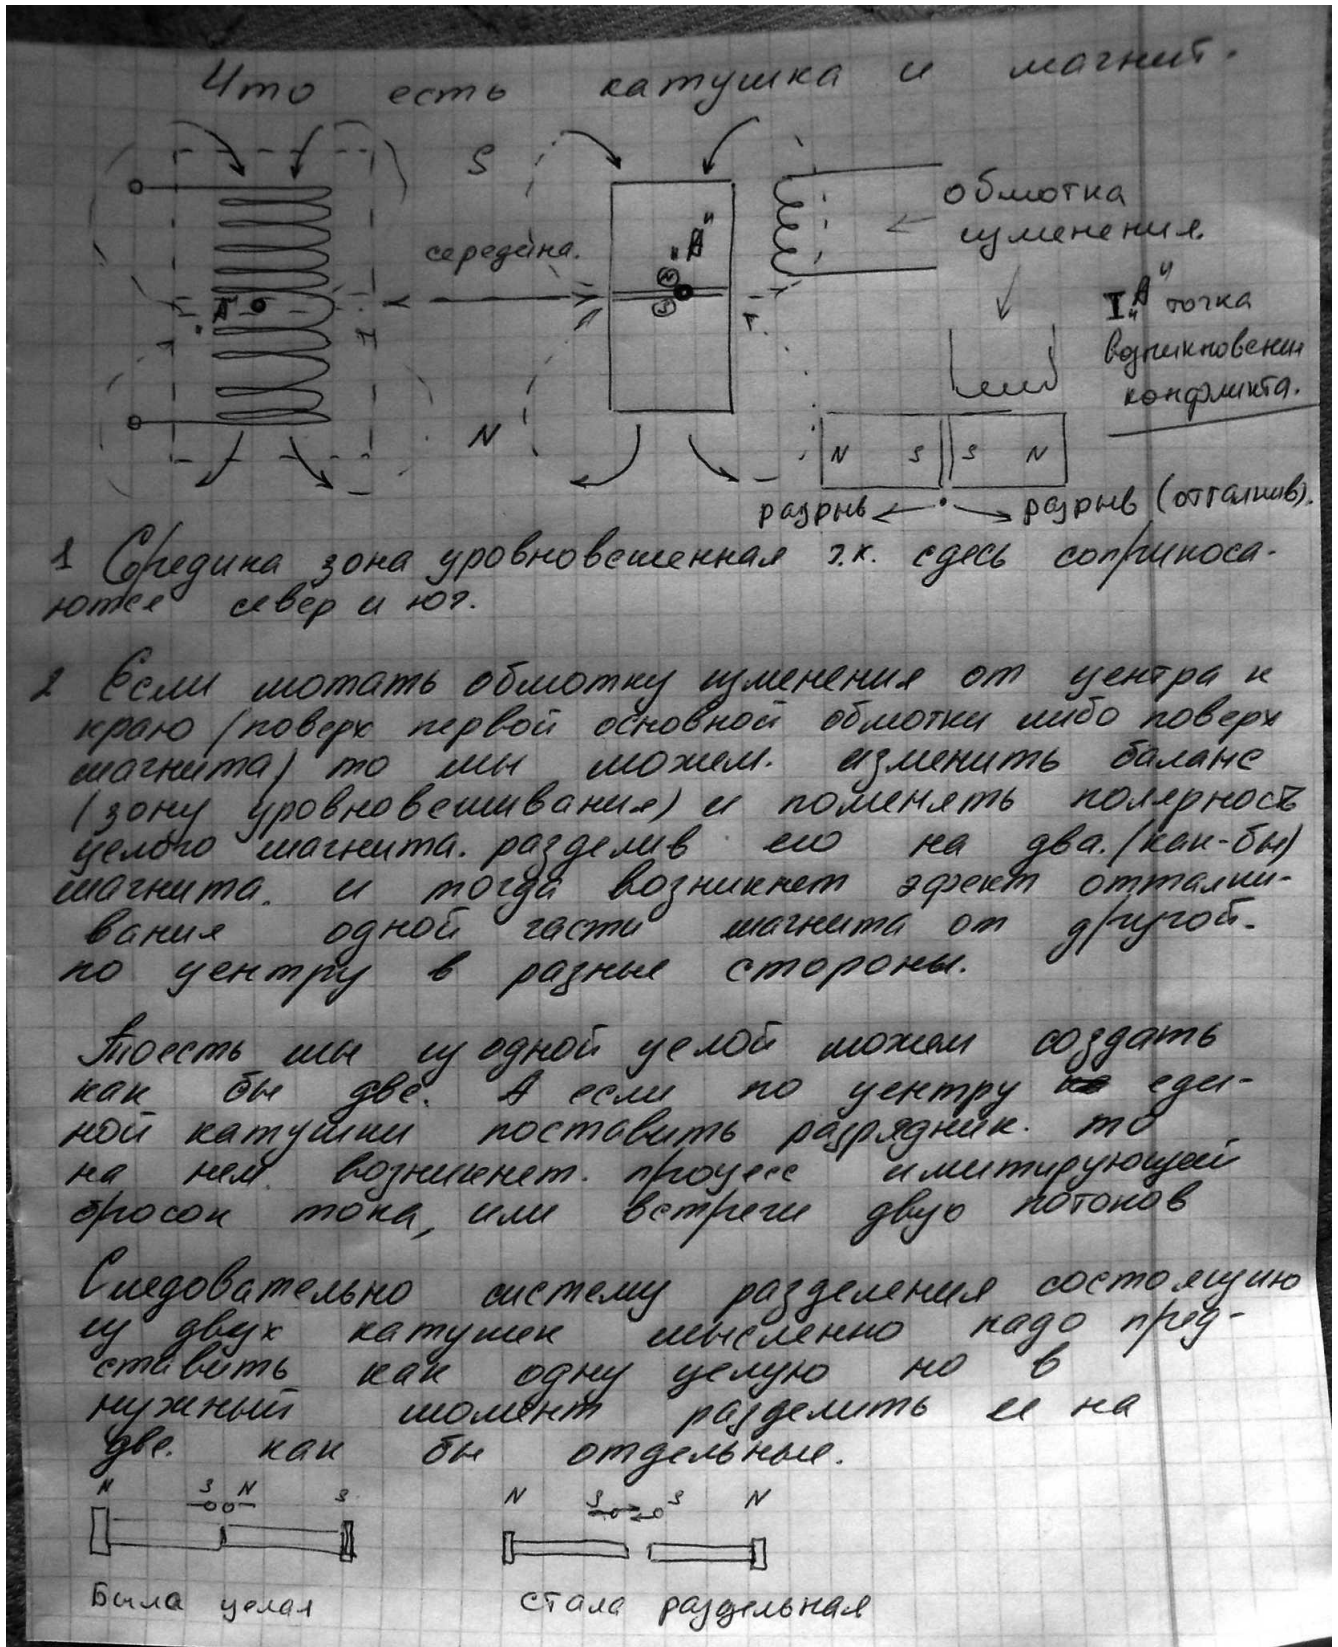 Что есть катушка и магнит.
S
середина.
"А"
N
S
"А"
N
обмотка
изменения.
I "А" точка
возникновении
конфликта.
N S S N
разрыв разрыв (отталкив).
1 Середина зона уровновешенная т.к. сдесь соприкоса-
ются север и юг.
2 Если мотать обмотку изменения от центра к
краю (поверх первой основной обмотки либо поверх
магнита) то мы можем. изменить баланс
(зону уровновешивания) и поменять полярность
целого магнита. разделив его на два. (как-бы)
магнита. и тогда возникнет эфект отталки-
вания одной части магнита от другой.
по центру в разные стороны.
Тоесть мы из одной целой можем создать
как бы две. А если по центру еди-
ной катушки поставить разрядник. то
на нем. возникнет. процесс имитирующей
бросок тока, или встречи двух потоков
Следовательно систему разделения состоящию
из двух катушек мысленно надо пред-
ставить как одну целую но в
нужный момент разделить ее на
две. как бы отдельные.
N S N S
N S S N
Была целая
стала раздельная